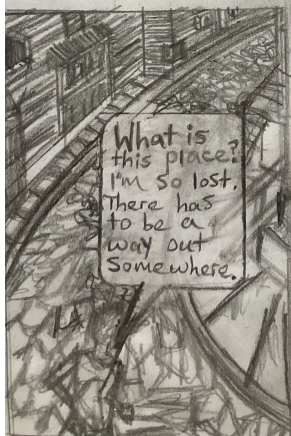 What is
this place?
I'm so lost.
There has
to be a
way out
somewhere.